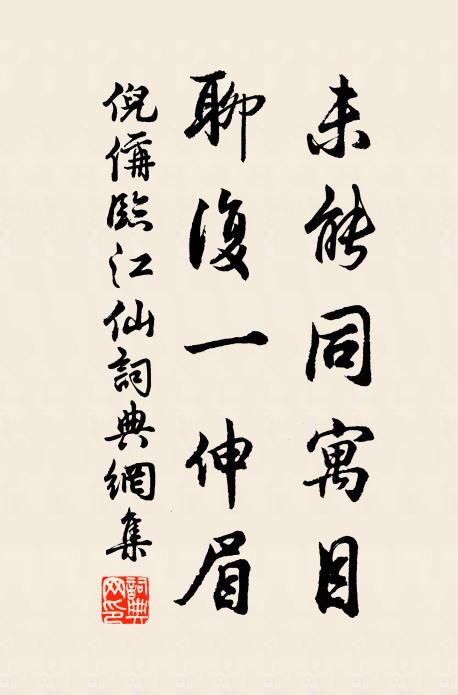 未能同寓目
聊復一伸眉
倪偁臨江仙詞典網集
詞典網印